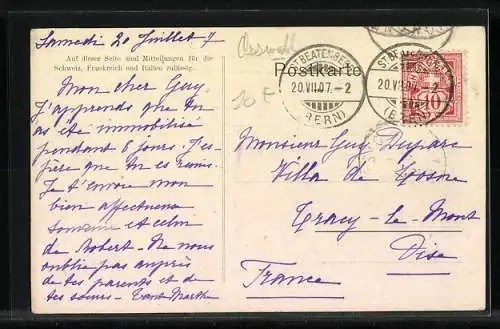 Samedi 20 Juillet 7
Auf dieser Seite sind Mitteilungen für die
Schweiz, Frankreich und Italien zulässig.
Mon cher Guy.
J'apprends que tu
as été immobilisé
pendant 8 jours. J'es-
père que tu es remis.
Je t'envoie mon
bien affectueux
souvenir et celui
de Robert. Ne nous
oublie pas auprès
de tes parents et de
tes sœurs - Tante Marthe
Postkarte
10 F
ST BEATENBERG
20.VII.07.-2
(BERN)
ST BEATENBERG
20.VII.07.-2
(BERN)
10
Monsieur Guy Duparc
Villa de
Tracy-le-Mont
Oise
France